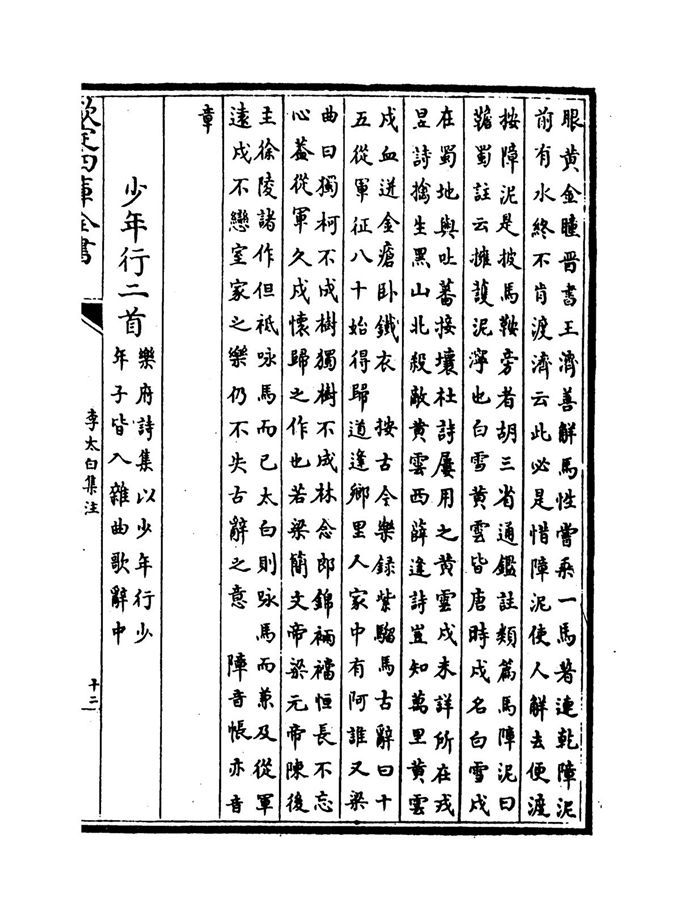 眼黄金瞳晋書王濟善解馬性嘗乘一馬著連乾障泥
前有水終不肯渡濟云此必是惜障泥使人解去便渡
按障泥是披馬鞍旁者胡三省通鑑註類篇馬障泥曰
韉蜀註云擁䕶泥濘也白雪黄雲皆唐時戍名白雪戍
在蜀地與吐蕃接壤杜詩屢用之黄雲戍未詳所在戎
昱詩擒生黑山北殺敵黄雲西薛逢詩豈知萬里黄雲
戍血迸金瘡卧鐵衣　按古今樂録紫騮馬古辭曰十
五從軍征八十始得歸道逢鄉里人家中有阿誰又梁
曲曰獨柯不成樹獨樹不成林念郎錦裲襠恒長不忘
心葢從軍久戍懷歸之作也若梁簡文帝梁元帝陳後
主徐陵諸作但祗咏馬而已太白則咏馬而兼及從軍
遠戍不戀室家之樂仍不失古辭之意　障音帳亦音
章
少年行二首
樂府詩集以少年行少
年子皆入雜曲歌辭中
欽定四庫全書
李太白集注
十二